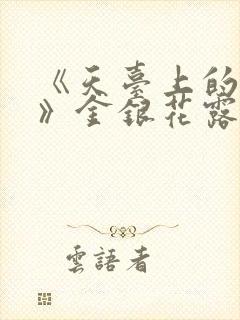 《天臺上的
》金銀花露
雲語者